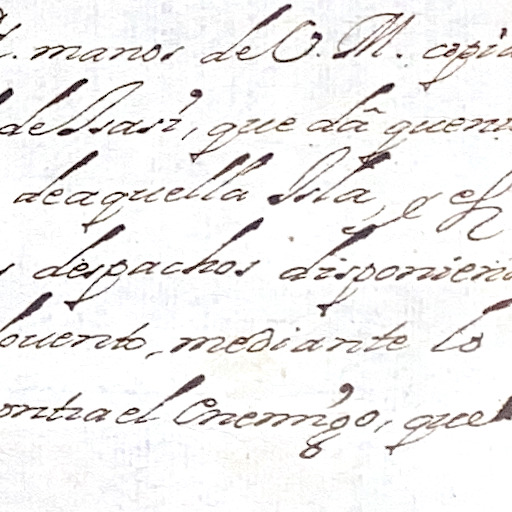 manos de V. M. copia
de Isasi, que da quent
de aquella Isla, y es
despachos disponien
mediante lo
contra el Enemigo, que